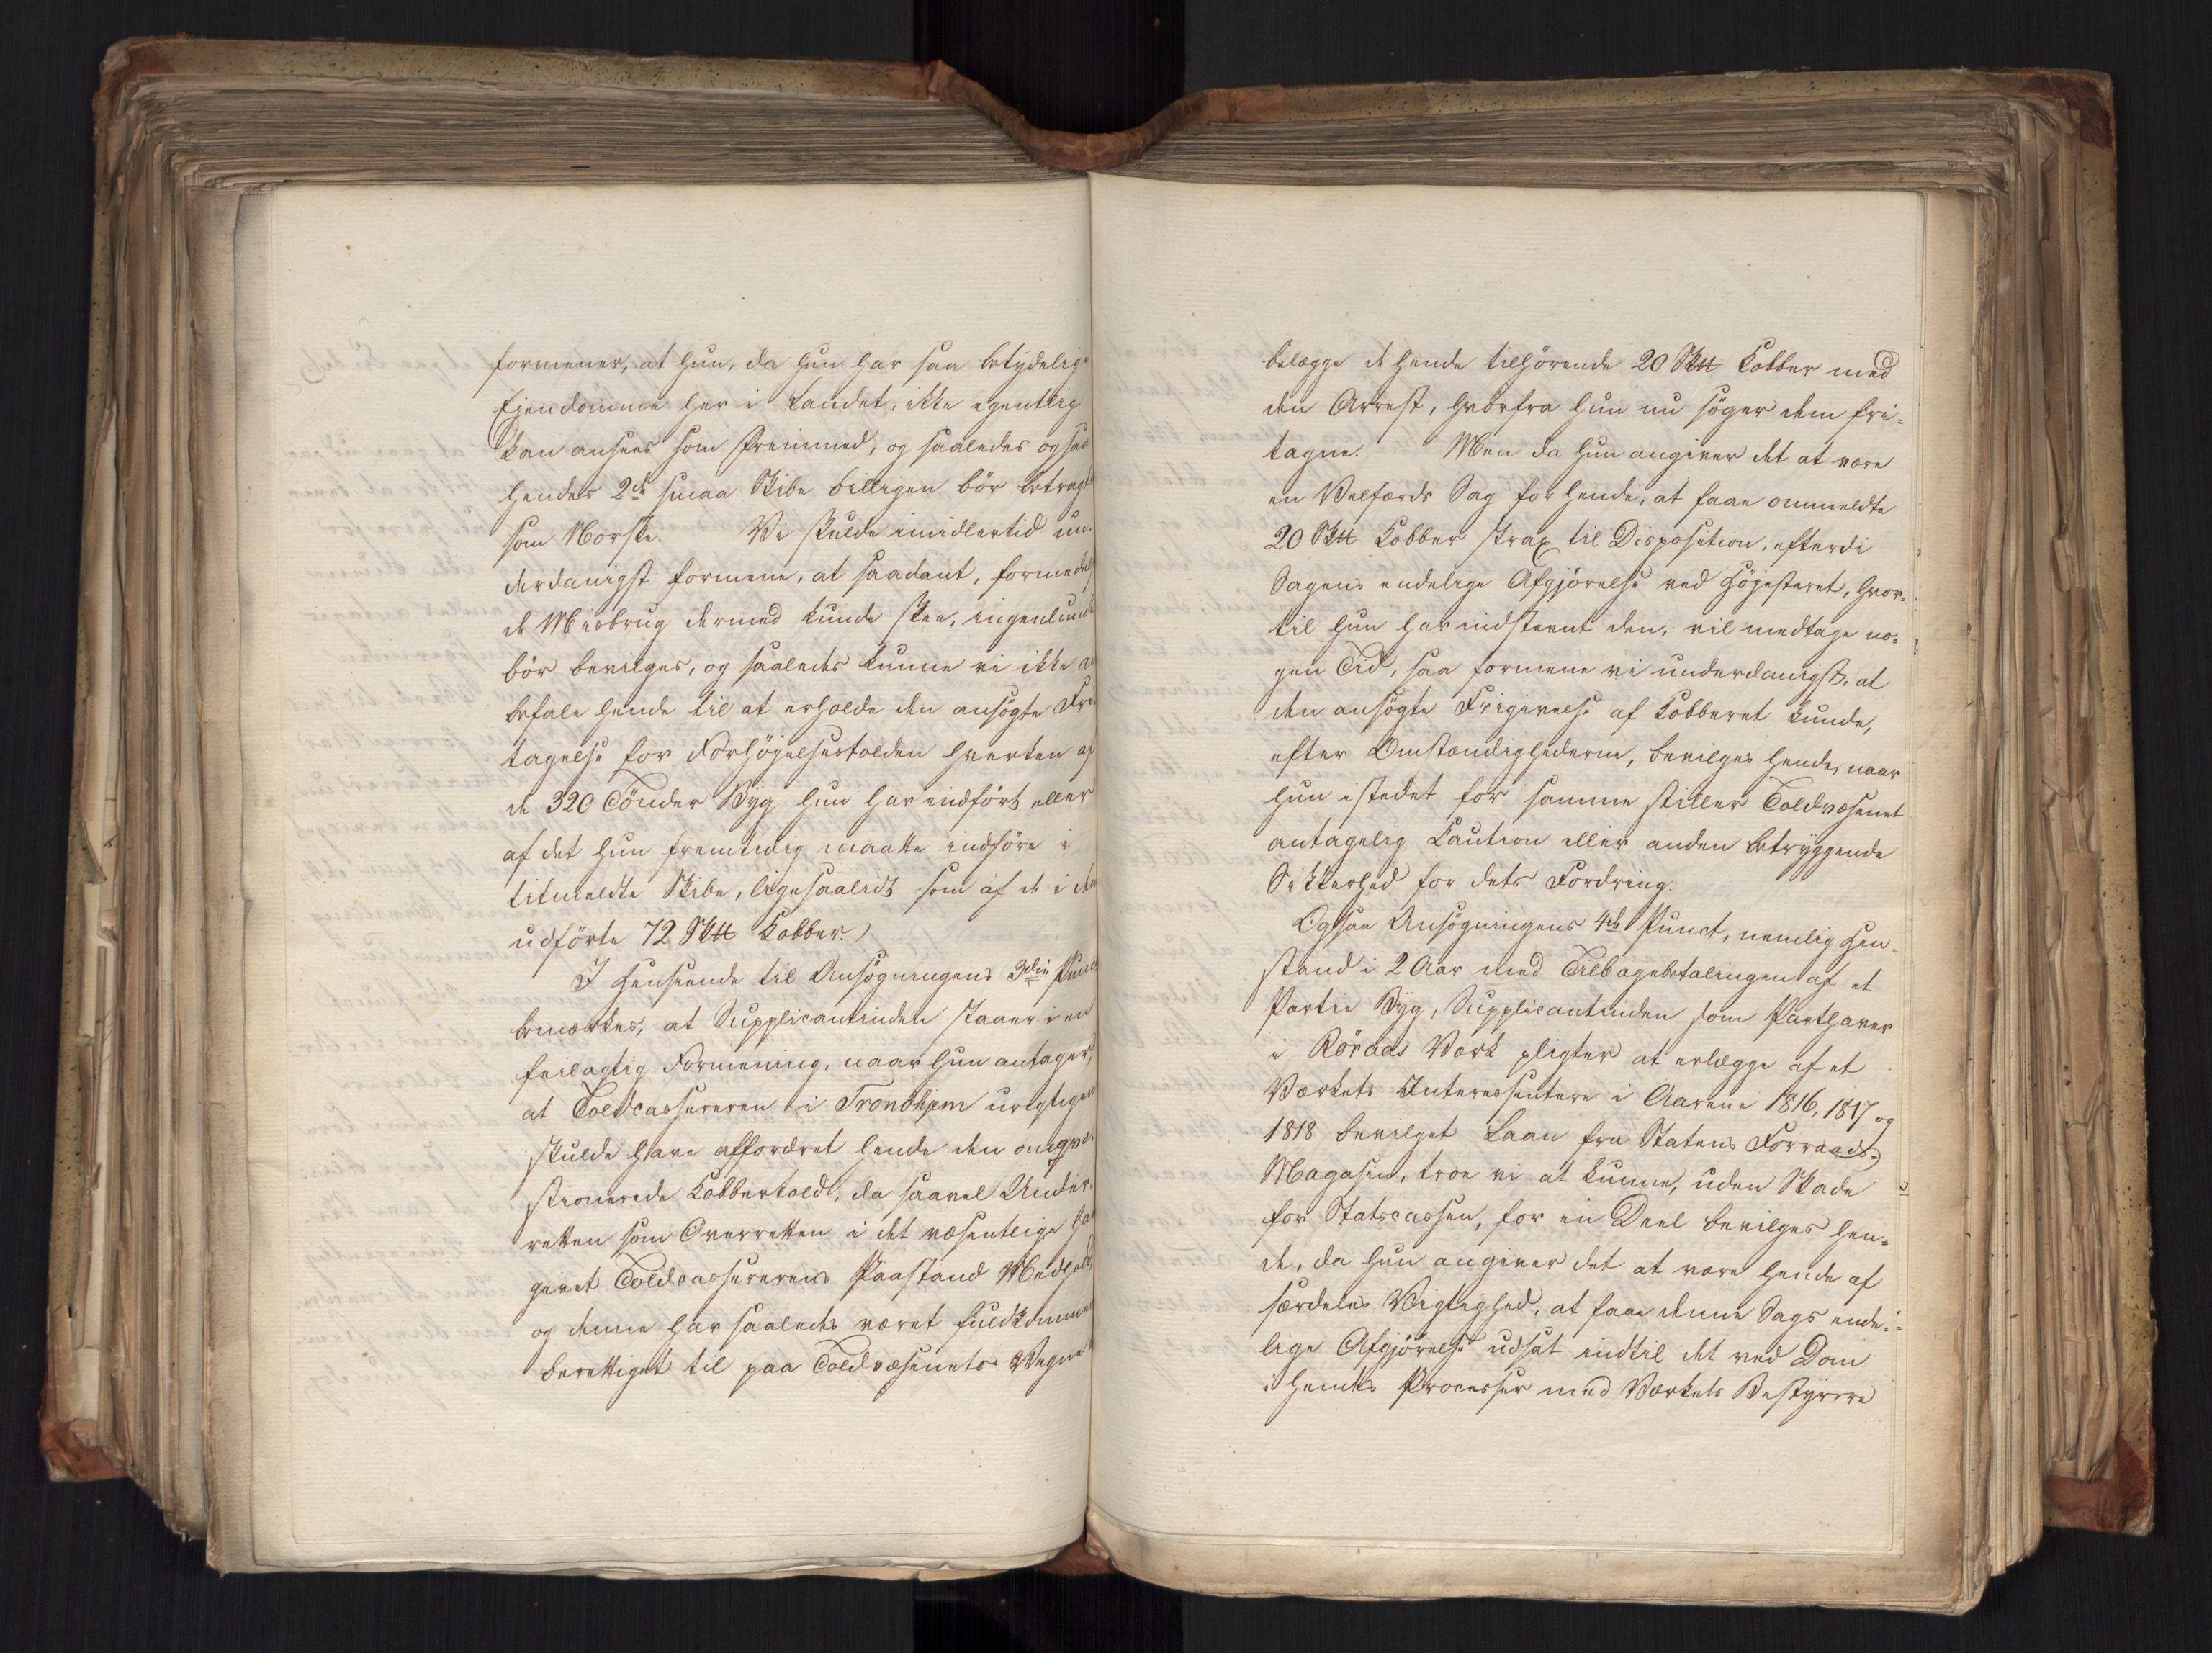 formener, at hun, da hun har saa betydelige
Ejendomme her i Landet, ikke egentlig
kan ansees som fremmed, og saaledes ogsaa
hendes 2de smaa Skibe billigen bör betragt
som Norske. Vi skulde imidlertid un-
derdanigst formene, at saadant, formedelst
de Misbrug dermed kunde skee, ingenlunde
bör bevilges, og saaledes kunne vi ikke an
befale hende til at erholde den ansögte Fri
tagelse for Forhöjelsestolden hverken af
de 320 Tönder Byg hun har indfört eller
af det hun fremtidig maatte indföre i
titmeldte Skibe, ligesaalidt som af de i dem
udförte 72 Sk℔ Kobber.
I Henseende til Ansögningens 3die Punct
bemærkes, at Supplicantinden staaer i en
feilagtig Formening, naar hun antager,
at Toldcassereren i Trondhjem urigtigen
skulde have affordret hende den omqvæ-
stionerede Kobbertold, da saavel Under-
retten som Overretten i det væsentlige har
givet Toldcassererens Paastand Medhold,
og denne har saaledes været fuldkommen
berettiget til paa Toldvæsenets Vegne
belægge de hende tilhörende 20 Sk℔ Kobber med
den Arrest, hvorfra hun nu söger dem fri-
tagne. Men da hun angiver det at være
en Velfærds Sag for hende, at faae ommeldte
20 Sk℔ Kobber strax til Disposition, efterdi
Sagens endelige Afgjörelse ved Höjesteret, hvor-
til hun har indstevnt den, vil medtage no-
gen Tid, saa formene vi underdanigst, at
den ansögte Frigivelse af Kobberet kunde,
efter Omstændighederne, bevilges hende, naar
hun istedet for samme stiller Toldvæsenet
antagelig Caution eller anden betryggende
Sikkerhed for dets Fordring.
Ogsaa Ansögningens 4de Punct, nemlig Hen-
stand i 2 Aar med Tilbagebetalingen af et
Partie Byg, Supplicantinden som Parthaver
i Röraas Værk pligter at erlægge af et
Værkets Interessentere i Aarene 1816, 1817 og
1818 bevilget Laan fra Statens Forraads-
Magasin, troe vi at kunne, uden Skade
for Statscassen, for en Deel bevilges hen-
de, da hun angiver det at være hende af
særdeles Vigtighed, at faae denne Sags ende-
lige Afgjörelse udsat indtil det ved Dom
i hendes Processer med Værkets Bestyrere